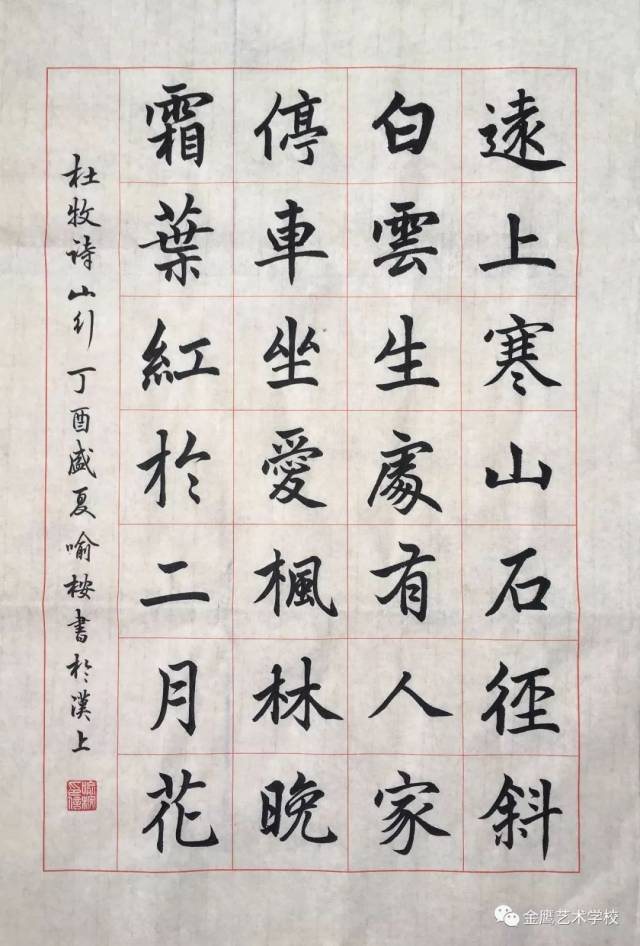 遠上寒山石徑斜
白雲生處有人家
停車坐愛楓林晚
霜葉紅於二月花
杜牧诗山行丁酉盛夏喻桉書於漢上
金鹰艺术学校